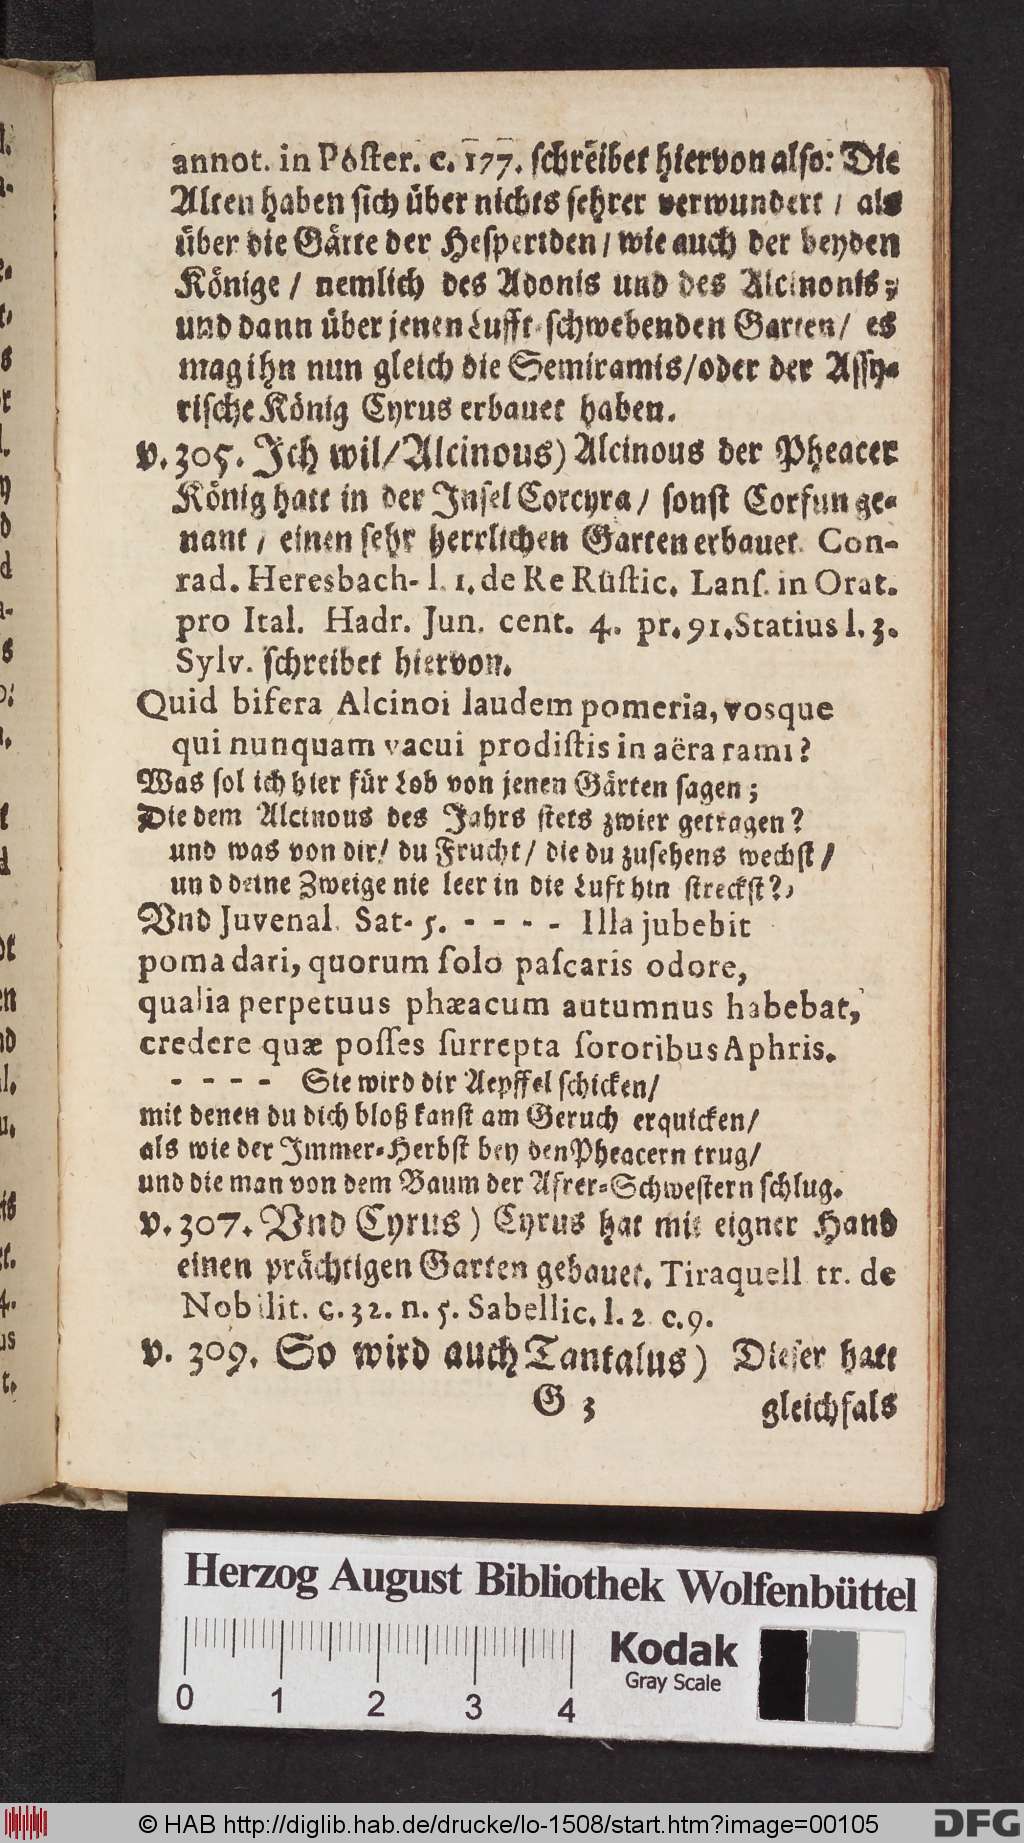 annot. in Pöſter. c. 177. ſchreibet hiervon alſo: Die
Alten haben ſich über nichts ſehrer verwundert / als
über die Gärte der Heſperiden / wie auch der beyden
Könige / nemlich des Adonis und des Alcinonis;
und dann über jenen Lufft-ſchwebenden Garten / es
mag ihn nun gleich die Semiramis / oder der Aſſy-
riſche König Cyrus erbauet haben.
v. 305. Ich wil / Alcinous) Alcinous der Pheacer
König hatt in der Inſel Corcyra / ſonſt Corfun ge-
nant / einen ſehr herrlichen Garten erbauet. Con-
rad. Heresbach- l. 1. de Re Rüſtic. Lanſ. in Orat.
pro Ital. Hadr. Jun. cent. 4. pr. 91. Statius l. 3.
Sylv. ſchreibet hiervon.
Quid bifera Alcinoi laudem pomeria, vosque
qui nunquam vacui prodiſtis in aëra rami?
Was ſol ich hier für Lob von jenen Gärten ſagen;
Die dem Alcinous des Jahrs ſtets zwier getragen?
und was von dir / du Frucht / die du zuſehens wechſt /
und deine Zweige nie leer in die Luft hin ſtreckſt?
Vnd Juvenal. Sat. 5. - - - - Illa jubebit
poma dari, quorum ſolo paſcaris odore,
qualia perpetuus phæacum autumnus habebat,
credere quæ poſſes ſurrepta ſororibus Aphris.
- - - - Sie wird dir Aepffel ſchicken /
mit denen du dich bloß kanſt am Geruch erquicken /
als wie der Immer-Herbſt bey den Pheacern trug /
und die man von dem Baum der Afrer-Schweſtern ſchlug.
v. 307. Vnd Cyrus) Cyrus hat mit eigner Hand
einen prächtigen Garten gebauet. Tiraquell tr. de
Nobilit. c. 32. n. 5. Sabellic. l. 2 c. 9.
v. 309. So wird auch Tantalus) Dieſer hatt
G 3 gleichfals
Herzog August Bibliothek Wolfenbüttel
Kodak
Gray Scale
0 1 2 3 4
© HAB http://diglib.hab.de/drucke/lo-1508/start.htm?image=00105
DFG